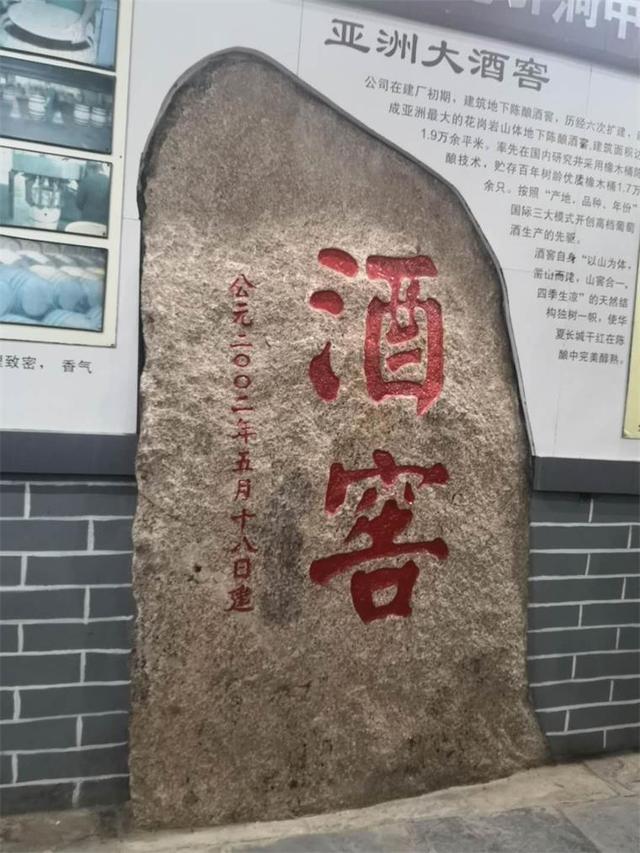 亚洲大酒窖
公司在建厂初期，建筑地下陈酿酒窖，历经六次扩建，
成亚洲最大的花岗岩山体地下陈酿酒窖,建筑面积达
1.9万余平米。率先在国内研究并采用橡木桶陈
酿技术，贮存百年树龄优质橡木桶1.7万
余只。按照“产地、品种、年份”
国际三大模式开创高档葡萄
酒生产的先驱。
酒窖自身“以山为体，
凿山而，山窖合一，
四季生凉”的天然结
构独树一帜，使华
夏长城干红在陈
酿中完美醇熟。
酒窖
公元二〇〇二年五月十八日建
致密，香气